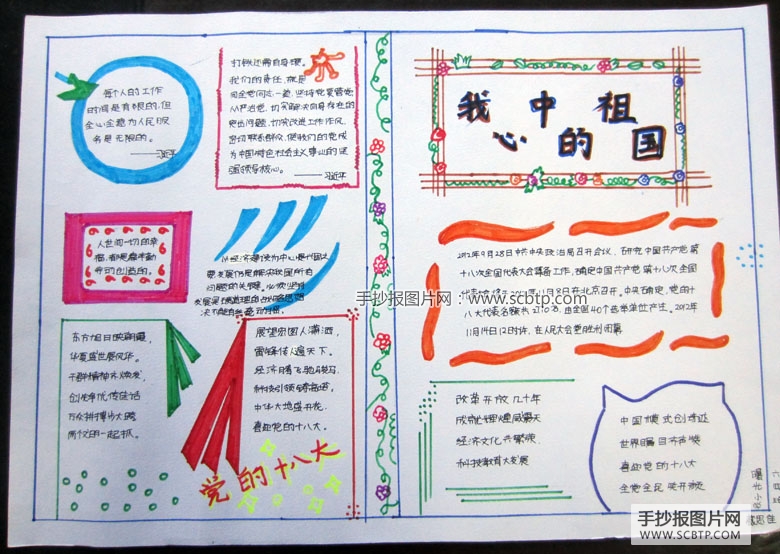 每个人的工作
时间是有限的,但
全心全意为人民服
务是无限的。
——习近平
打铁还需自身硬。
我们的责任,就是
同全党同志一道,坚持党要管党
从严治党,切实解决自身存在的
突出问题,切实改进工作作风,
密切联系群众,使我们的党成
为中国特色社会主义事业的坚
强领导核心。
——习近平
我 中 祖
心 的 国
人世间一切的幸
福,都是靠辛勤
劳动创造的。
以经济建设为中心是兴国之
要,发展仍是解决我国所有
问题的关键。
2012年9月28日中共中央政治局召开会议,研究中国共产党第
十八次全国代表大会筹备工作,确定中国共产党第十八次全国
2012年11月8日在北京召开。中央确定,党的十
八大代表名额共 由全国40个选举单位产生。2012年
11月14日12时许,在人民大会堂胜利闭幕
手抄报图片网:www.scbtp.com
东方旭日映朝霞,
华夏盛世展风华。
干群精神亦焕发,
创先争优传佳话
万众拼搏步大跨
两个文明一起抓。
展望宏图人潇洒,
雷锋传人遍天下。
经济腾飞驰骏马,
科技引领
中华大地盛开花,
喜迎党的十八大。
党的十八大
改革开放几十年
成就辉煌
经济文化共繁荣
科技教育大发展
中国模式创奇迹
世界瞩目齐声赞
喜迎党的十八大
全党全民笑开颜
手抄报图片网
WWW.SCBTP.COM